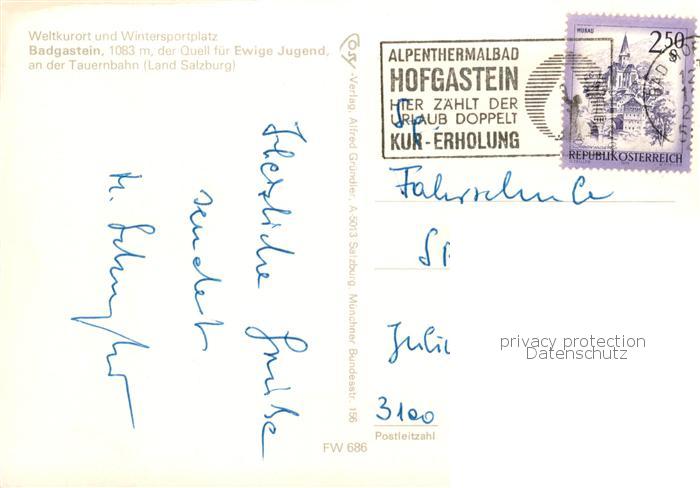 Weltkurort und Wintersportplatz
Badgastein, 1083 m, der Quell für Ewige Jugend,
an der Tauernbahn (Land Salzburg)
Herzliche Grüße
sendet
-Verlag, Alfred Gründler, A-5013 Salzburg, Münchner Bundesstr. 156
FW 686
ALPENTHERMALBAD
HOFGASTEIN
HIER ZÄHLT DER
URLAUB DOPPELT
KUR-ERHOLUNG
MURAU
2.50
REPUBLIK ÖSTERREICH
BAD
Fahrschule
3100
Postleitzahl
privacy protection
Datenschutz